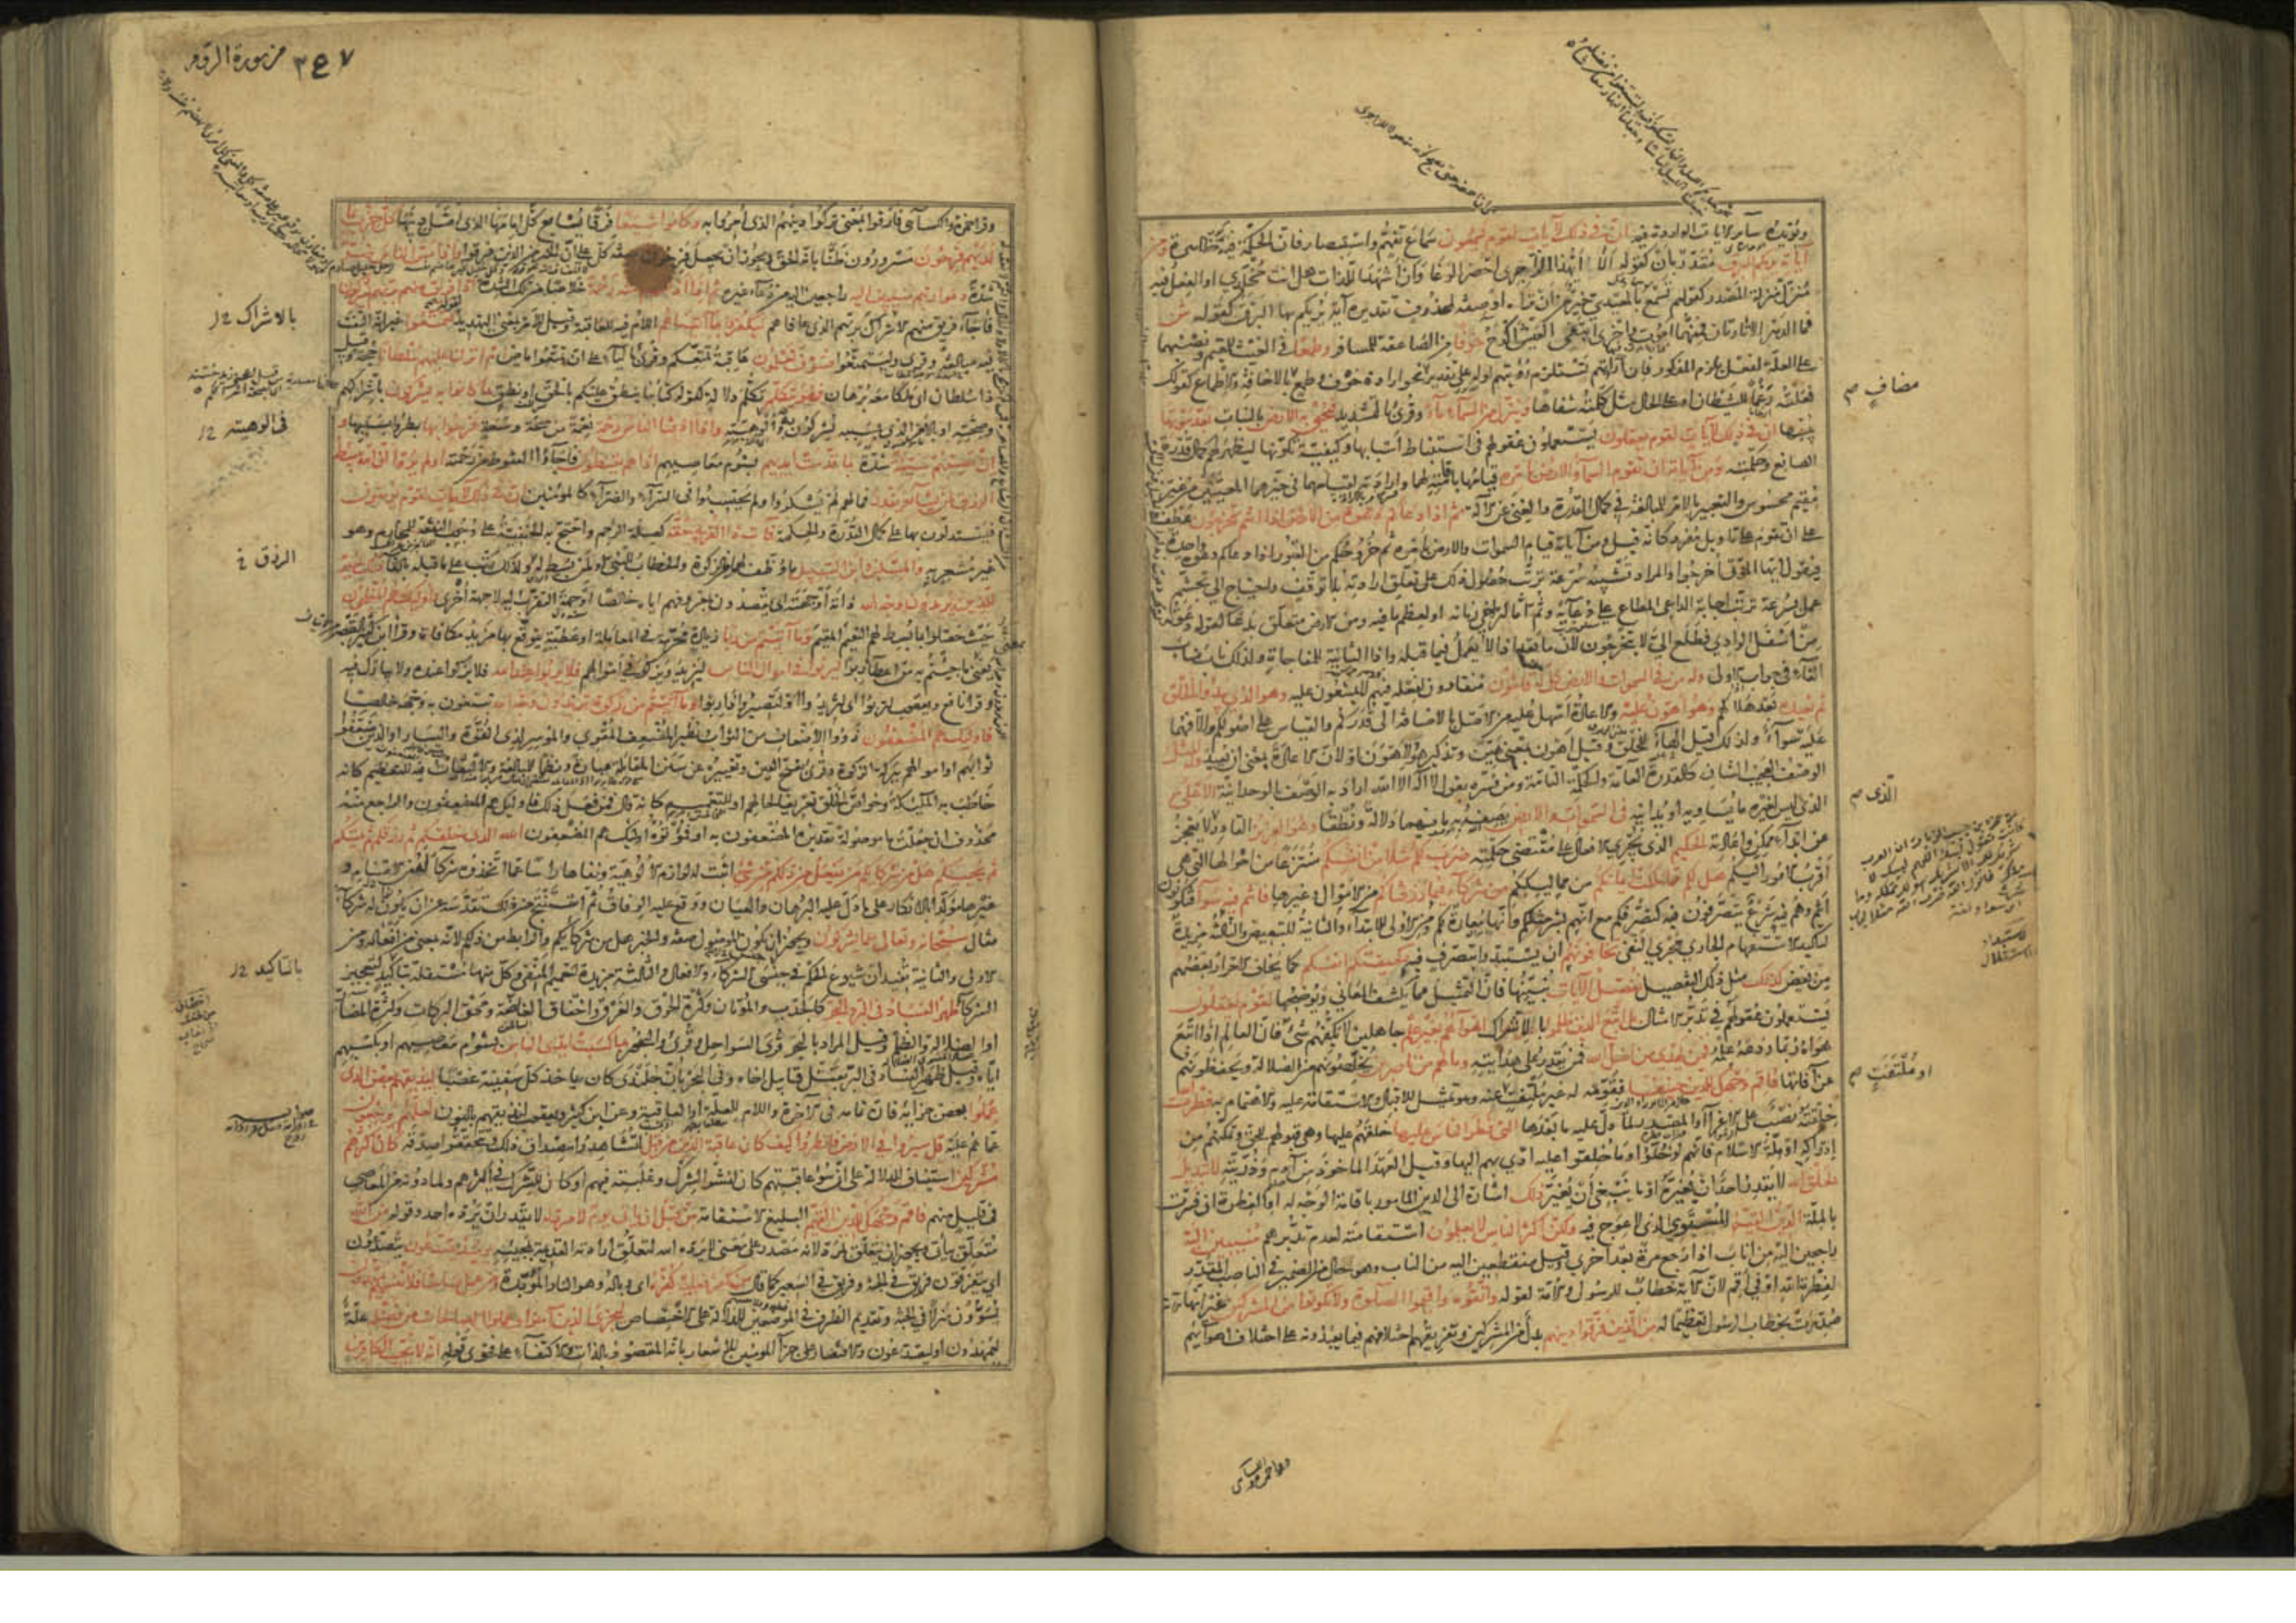 ويؤيده سائر الآيات الواردة فيه ان في ذلك لآيات لقوم يسمعون سماع تفهم واستبصار فان الحكمة فيه ظاهرة ومن
آياته يريكم البرق مقدر بأن كقوله ألا أيهذا الزاجري احضر الوغا وأن أشهد اللذات هل انت مخلدي او الفعل فيه
منزل منزلة المصدر كقولهم تسمع بالمعيدي خير من أن تراه او صفة لمحذوف تقديره آية يريكم بها البرق كقوله
فما الدهر الا تارتان فمنهما اموت واخرى ابتغي العيش اكدح خوفا من الصاعقة للمسافر وطمعا في الغيث للمقيم ونصبهما
على العلة لفعل يلزم المذكور فان اراءتهم تستلزم رؤيتهم اوله على تقدير نحو ارادة خوف وطمع بالاخافة والاطماع كقولك
فعلته رغما للشيطان او على الحال مثل كلمته شفاها وينزل من السماء ماء وقرئ بالتشديد فيحيي به الارض بالنبات بعد موتها
يبسها ان في ذلك لآيات لقوم يعقلون يستعملون عقولهم في استنباط أسبابها وكيفية تكونها ليظهر لهم كمال قدرة
الصانع وحكمته ومن آياته ان تقوم السماء والارض بامره قيامهما باقامته لهما وارادته لقيامهما في حيزهما المعينين من غير
مقيم محسوس والتعبير بالامر للمبالغة في كمال القدرة والغنى عن الآلة ثم اذا دعاكم دعوة من الارض اذا انتم تخرجون عطف
على ان تقوم على تأويل مفرد كانه قيل ومن آياته قيام السموات والارض بامره ثم خروجكم من القبور اذا دعاكم دعوة واحدة
فيقول ايها الموتى اخرجوا والمراد تشبيه سرعة ترتب حصول ذلك على تعلق ارادته بلا توقف واحتياج الى تجشم
عمل بسرعة ترتب اجابة الداعي المطاع على دعائه وثم اما لتراخي زمانه او لعظم ما فيه ومن الارض متعلق بدعا كقوله دعوته
من اسفل الوادي فطلع الي لا بتخرجون لان ما بعد اذا لا يعمل فيما قبله واذا الثانية للمفاجاة ولذلك ناب مناب
الفاء في جواب الاولى وله من في السموات والارض كل له قانتون منقادون لفعله فيهم لا يمتنعون عليه وهو الذي يبدؤ الخلق
ثم يعيده بعد هلاكهم وهو اهون عليه والاعادة اسهل عليه من الاصل بالاضافة الى قدركم والقياس على اصولكم والا فهما
عليه سواء ولذلك قيل الهاء للخلق وقيل اهون بمعنى هين وتذكير هو لاهون او لان الاعادة بمعنى ان يعيد وله المثل
الوصف العجيب الشان كالقدرة العامة والحكمة التامة ومن فسره بقول لا اله الا الله اراد به الوصف بالوحدانية الاعلى
الذي ليس لغيره ما يساويه او يدانيه في السموات والارض يصفه به ما فيهما دلالة ونطقا وهو العزيز القادر لا يعجز
عن ابداء ممكن واعادته الحكيم الذي يجري الافعال على مقتضى حكمته ضرب لكم مثلا من انفسكم منتزعا من احوالها التي هي
اقرب الامور اليكم هل لكم مما ملكت ايمانكم من مماليككم من شركاء فيما رزقناكم من الاموال وغيرها فانتم فيه سواء فتكونون
انتم وهم فيه شرع يتصرفون فيه كتصرفكم مع انهم بشر مثلكم وانها معارة لكم ومن الاولى للابتداء والثانية للتبعيض والثالثة مزيدة
لتاكيد الاستفهام الجاري مجرى النفي تخافونهم ان يستبدوا بتصرف فيه كخيفتكم انفسكم كما يخاف الاحرار بعضهم
من بعض كذلك مثل ذلك التفصيل نفصل الآيات نبينها فان التمثيل مما يكشف المعاني ويوضحها لقوم يعقلون
يستعملون عقولهم في تدبر الامثال بل اتبع الذين ظلموا بالاشراك اهواءهم بغير علم جاهلين لا يكفهم شئ فان العالم اذا اتبع
هواه ردعه علمه فمن يهدي من اضل الله فمن يقدر على هدايته وما لهم من ناصرين يخلصونهم من الضلالة ويحفظونهم
عن آفاتها فاقم وجهك للدين حنيفا فقومه له غير ملتفت عنه وهو تمثيل للاقبال والاستقامة عليه والاهتمام به فطرت الله
خلقته نصب على الاغراء او المصدر لما دل عليه ما بعدها التي فطر الناس عليها خلقهم عليها وهي قبولهم للحق وتمكنهم من
ادراكه او ملة الاسلام فانهم لو خلوا وما خلقوا عليه ادى بهم اليها وقيل العهد الماخوذ من آدم وذريته لا تبديل
لخلق الله لا يقدر احد ان يغيره او ما ينبغي أن يغير ذلك اشارة الى الدين المامور باقامة الوجه له او الفطرة ان فسرت
بالملة الدين القيم المستوي الذي لا عوج فيه ولكن اكثر الناس لا يعلمون استقامته لعدم تدبرهم منيبين اليه
راجعين اليه من اناب اذا رجع مرة بعد اخرى وقيل منقطعين اليه من الناب وهو حال من الضمير في الناصب المقدر
لفطرة الله او في اقم لان الآية خطاب للرسول والامة لقوله واتقوه واقيموا الصلوة ولا تكونوا من المشركين غير انها
صدرت بخطاب الرسول تعظيما له من الذين فرقوا دينهم بدل من المشركين وتفريقهم اختلافهم فيما يعبدونه على اختلاف اهوائهم
مضاف ص
الذى ص
او ملتفت ص
وقرا حمزة والكسائى
من سورة الروم ٣٤٧
وقرا حمزة والكسائى فارقوا بمعنى تركوا دينهم الذى أمروا به وكانوا شيعا فرقا يشايع كل امامها الذى اضل دينها كل حزب بما
لديهم فرحون مسرورون ظنا بانه الحق ويجوز ان يجعل فرحون صفة كل على ان الخبر من الذين فرقوا واذا مس الناس ضر
شدة دعوا ربهم منيبين اليه راجعين اليه من دعاء غيره ثم اذا اذاقهم منه رحمة خلاصا من تلك الشدة اذا فريق منهم بربهم يشركون
فاجاء فريق منهم الاشراك بربهم الذى عافاهم ليكفروا بما آتيناهم اللام فيه للعاقبة وقيل للامر بمعنى التهديد لقوله فتمتعوا غير انه التفت
فيه مبالغة وقرئ وليتمتعوا فسوف تعلمون عاقبة تمتعكم وقرئ بالياء على ان تمتعوا ماض ام انزلنا عليهم سلطانا حجة وقيل
ذا سلطان اى ملكا معه برهان فهو يتكلم تكلم دلالة كقوله كتابنا ينطق عليكم بالحق او نطق بما كانوا به يشركون باشراكهم
وصحته او بالامر الذى بسببه يشركون به والوهيته واذا اذقنا الناس رحمة نعمة من صحة وسعة فرحوا بها بطروا بسببها و
ان تصبهم سيئة شدة بما قدمت ايديهم بشؤم معاصيهم اذا هم يقنطون فاجاؤا القنوط من رحمته اولم يروا ان الله يبسط
الرزق لمن يشاء ويقدر فما لهم لم يشكروا ولم يحتسبوا في السراء والضراء كالمؤمنين ان في ذلك لآيات لقوم يؤمنون
فيستدلون بها على كمال القدرة والحكمة فآت ذا القربى حقه كصلة الرحم واحتج به الحنفية على وجوب النفقة للمحارم وهو
غير مشعر به والمسكين وابن السبيل ما وظف لهما من الزكوة والخطاب للنبي او لمن بسط له ولذلك رتب على ما قبله بالفاء ذلك خير
للذين يريدون وجه الله ذاته أو جهته اى يقصدون بمعروفهم اياه خالصا او جهة التقرب اليه لا جهة أخرى واولئك هم المفلحون
حيث حصلوا بما بسط لهم النعيم المقيم وما آتيتم من ربا زيادة محرمة في المعاملة او عطية يتوقع بها مزيد مكافاة وقرا ابن كثير بالقصر
بمعنى ما جئتم به من اعطاء ربا ليربو في اموال الناس ليزيد ويزكو في أموالهم فلا يربو عند الله فلا يزكو عنده ولا يبارك فيه
وقرا نافع ويعقوب لتربوا اى لتزيدوا او لتصيروا ذا ربوا وما آتيتم من زكوة تريدون وجه الله تبتغون به وجهه خالصا
فاولئك هم المضعفون ذووا الاضعاف من الثواب ونظير المضعف المقوي والموسر لذى القوة واليسار او الذين ضعفوا
ثوابهم او اموالهم ببركة الزكوة وقرئ بفتح العين وتغييره عن سنن المقابلة عبارة ونظما للمبالغة والالتفات فيه للتعظيم كانه
خاطب به الملائكة وخواص الخلق تعريفا لحالهم او للتعميم كانه قال فمن فعل ذلك فاولئك هم المضعفون والراجع منه
محذوف ان جعلت ما موصولة تقديره المضعفون به او فمؤتوه اولئك هم المضعفون الله الذى خلقكم ثم رزقكم ثم يميتكم
ثم يحييكم هل من شركائكم من يفعل من ذلكم من شئ اثبت له لوازم الالوهية ونفاها راسا عما اتخذوه شركاء له من الاصنام و
غيرها مؤكدا بالانكار على ما دل عليه البرهان والعيان ووقع عليه الوفاق ثم استنتج من ذلك تقدسه عن ان يكون له شركاء
فقال سبحانه وتعالى عما يشركون ويجوز ان يكون الموصول صفة والخبر هل من شركائكم والرابط من ذلكم لانه بمعنى من افعاله ومن
الاولى والثانية تفيدان شيوع الحكم في جنسى الشركاء والافعال والثالثة مزيدة لتعميم المنفى وكل منها مستقلة بتاكيد لتعجيز
الشركاء ظهر الفساد في البر والبحر كالجدب والموتان وكثرة الحرق والغرق واخفاق الغاصة ومحق البركات وكثرة المضار
او الضلالة والظلم وقيل المراد بالبحر قرى السواحل وقرئ والبحور بما كسبت ايدى الناس بشؤم معاصيهم او بكسبهم
اياه وقيل ظهر الفساد في البر بقتل قابيل اخاه وفى البحر بأن جلندى كان ياخذ كل سفينة غصبا ليذيقهم بعض الذى
عملوا بعض جزائه فان تمامه في الآخرة واللام للعلة او للعاقبة وعن ابن كثير ويعقوب لنذيقهم بالنون لعلهم يرجعون
عما هم عليه قل سيروا في الارض فانظروا كيف كان عاقبة الذين من قبل لتشاهدوا مصداق ذلك وتحققوا صدقه كان اكثرهم
مشركين استيناف للدلالة على ان سوء عاقبتهم كان لفشو الشرك وغلبته فيهم او كان للشرك في اكثرهم ولما دونه من المعاصى
في قليل منهم فاقم وجهك للدين القيم البليغ الاستقامة من قبل ان ياتي يوم لا مرد له لا يقدر ان يرده احد وقوله من الله
متعلق بيأتى ويجوز ان يتعلق بمرد لانه مصدر على معنى لا يرده الله لتعلق ارادته القديمة بمجيئه يومئذ يصدعون يتصدعون
اى يتفرقون فريق في الجنة وفريق في السعير كما قال من كفر فعليه كفره اى وباله وهو النار المؤبدة ومن عمل صالحا فلانفسهم يمهدون
يسوون منزلا في الجنة وتقديم الظرف في الموضعين للدلالة على الاختصاص ليجزى الذين آمنوا وعملوا الصالحات من فضله علة
ليمهدون او ليصدعون والاقتصار على جزاء المؤمنين للاشعار بانه المقصود بالذات والاكتفاء على فحوى قوله انه لا يحب الكافرين
بالاشراك
فى الوهيته
الرزق
بالتاكيد